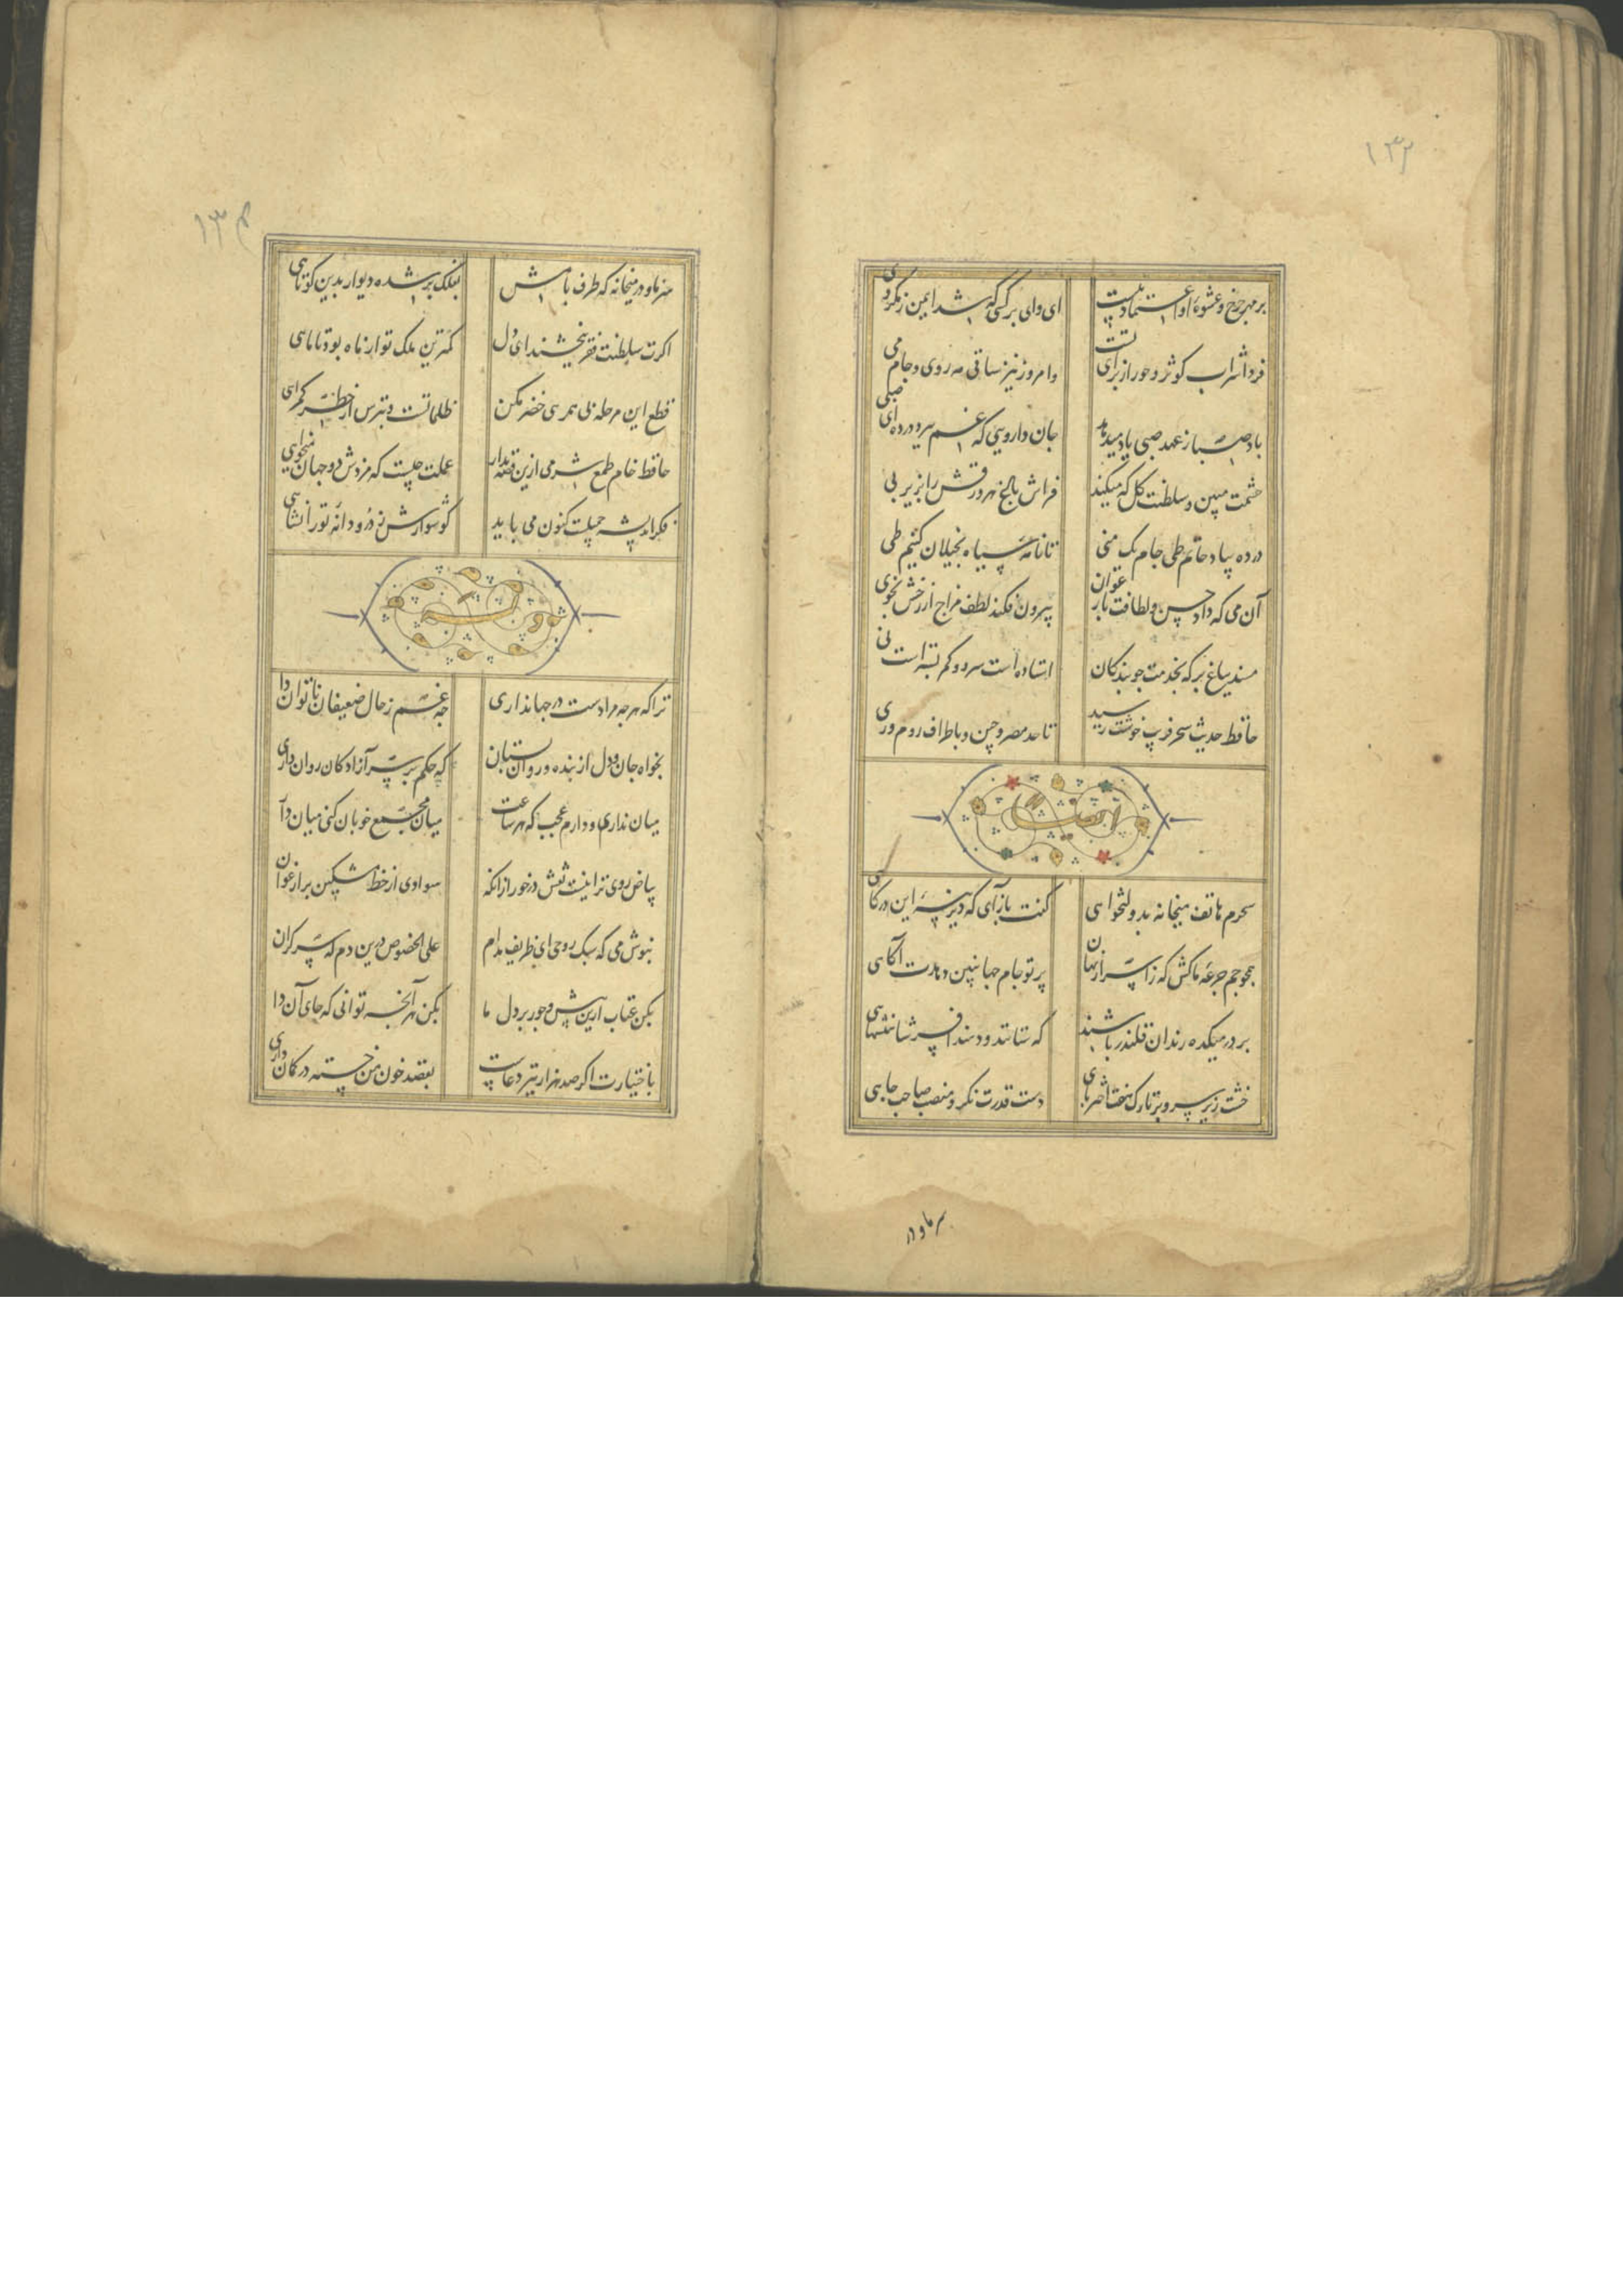 ۱۳۳
بر مهر چرخ و عشوهٔ او اعتماد نیست ای وای بر کسی که شد ایمن ز مکر وی
فردا شراب کوثر و حور از برای ماست و امروز نیز ساقی مه روی و جام می
باد صبا ز عهد صبی یاد میدهد جان دارویی که غم ببرد در ده ای صبی
حشمت مبین و سلطنت گل که میکند فراش باد هر ورقش را بزیر پی
در ده بیاد حاتم طی جام یک منی تا نامهٔ سیاه بخیلان کنیم طی
آن می که داد حسن و لطافت بارغوان بیرون فکند لطف مزاج از رخش بخوی
مسند بباغ بر که بخدمت چو بندکان استاده است سرو و کمر بسته است نی
حافظ حدیث سحر فریب خوشت رسید تا حد مصر و چین و باطراف روم و ری
سحرم هاتف میخانه بدولتخواهی کفت بازآی که دیرینهٔ این درکاهی
همچو جم جرعهٔ ما کش که ز اسرار نهان پرتو جام جهانبین دهدت آکاهی
بر در میکده رندان قلندر باشند که ستانند و دهند افسر شاهنشاهی
خشت زیر سر و بر تارک هفت اختر پای دست قدرت نکر و منصب صاحب جاهی
سر ما و در
۱۳۴
سر ما و در میخانه که طرف بامش بفلک بر شده دیوار بدین کوتاهی
اکرت سلطنت فقر ببخشند ای دل کمترین ملک تو از ماه بود تا ماهی
قطع این مرحله بی همرهی خضر مکن ظلماتست بترس از خطر کمراهی
حافظ خام طمع شرمی ازین قصه بدار عملت چیست که مزدش دو جهان میخواهی
ترا که هرچه مرادست در جهان داری چه غم ز حال ضعیفان ناتوان داری
بخواه جان و دل از بنده و روان بستان که حکم بر سر آزادکان روان داری
میان نداری و دارم عجب که هر ساعت میان مجمع خوبان کنی میان داری
بیاض روی ترا نیست نقش درخور ازانکه سوادی از خط مشکین بر ارغوان داری
بنوش می که سبک روحی ای ظریف مدام علی الخصوص درین دم که سر کران داری
مکن عتاب ازین بیش و جور بر دل ما بکن هر آنچه توانی که جای آن داری
باختیارت اکر صد هزار تیر دعاست بقصد خون من خسته در کمان داری